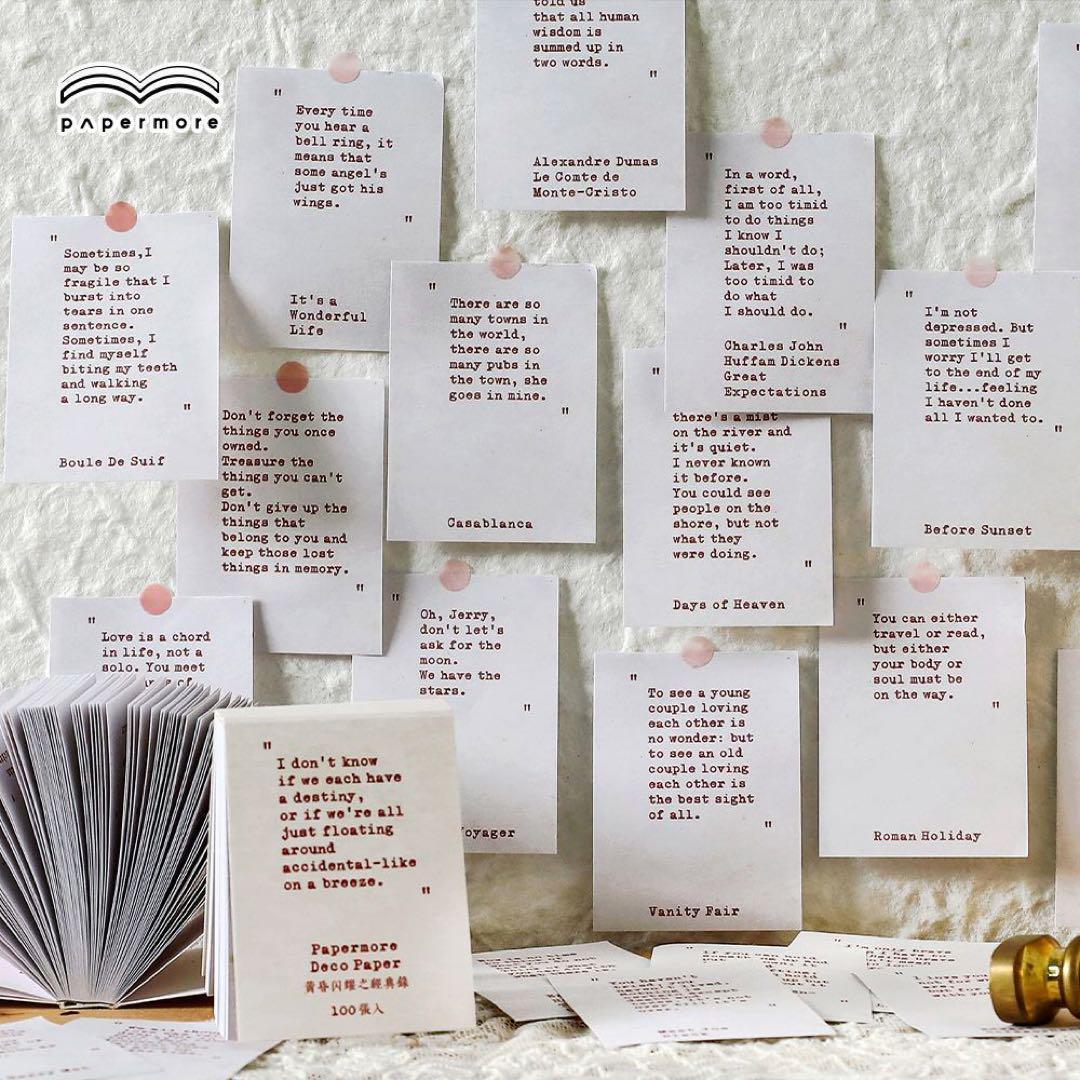 pʌpermore
told us
that all human
wisdom is
summed up in
two words.
"
Alexandre Dumas
Le Comte de
Monte-Cristo
"
Every time
you hear a
bell ring, it
means that
some angel's
just got his
wings.
"
It's a
Wonderful
Life
"
In a word,
first of all,
I am too timid
to do things
I know I
shouldn't do;
Later, I was
too timid to
do what
I should do.
"
Charles John
Huffam Dickens
Great
Expectations
"
Sometimes,I
may be so
fragile that I
burst into
tears in one
sentence.
Sometimes, I
find myself
biting my teeth
and walking
a long way.
"
Boule De Suif
"
There are so
many towns in
the world,
there are so
many pubs in
the town, she
goes in mine.
"
Casablanca
"
I'm not
depressed. But
sometimes I
worry I'll get
to the end of my
life...feeling
I haven't done
all I wanted to.
"
Before Sunset
Don't forget the
things you once
owned.
Treasure the
things you can't
get.
Don't give up the
things that
belong to you and
keep those lost
things in memory.
"
"
there's a mist
on the river and
it's quiet.
I never known
it before.
You could see
people on the
shore, but not
what they
were doing.
"
Days of Heaven
"
Love is a chord
in life, not a
solo. You meet
"
Oh, Jerry,
don't let's
ask for the
moon.
We have the
stars.
"
Voyager
"
You can either
travel or read,
but either
your body or
soul must be
on the way.
"
Roman Holiday
"
To see a young
couple loving
each other is
no wonder: but
to see an old
couple loving
each other is
the best sight
of all.
"
Vanity Fair
"
I don't know
if we each have
a destiny,
or if we're all
just floating
around
accidental-like
on a breeze.
"
Papermore
Deco Paper
黃昏閃耀之經典錄
100張入